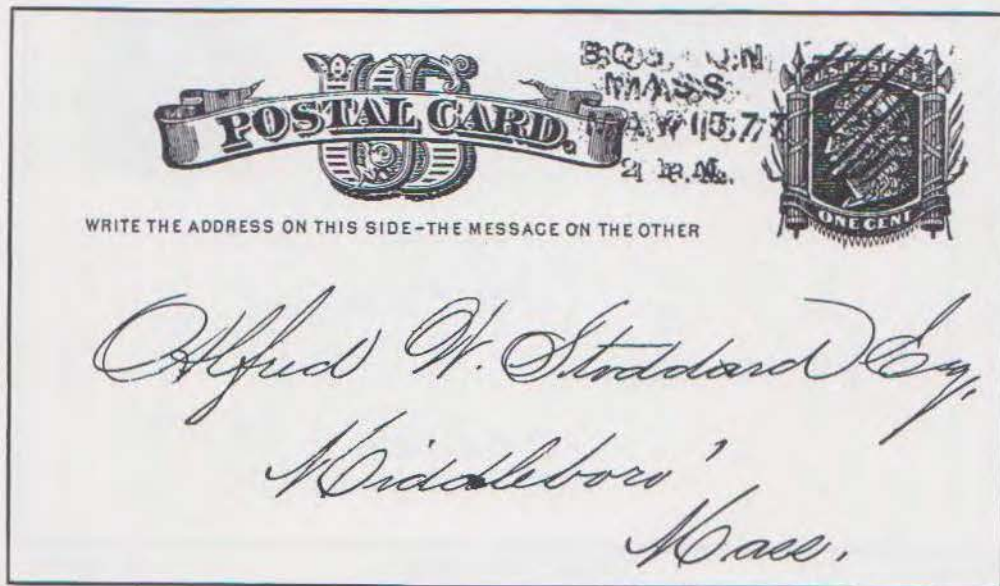 US
POSTAL CARD.
BOSTON
MASS
MAY 15 77
P.M.
ONE CENT
WRITE THE ADDRESS ON THIS SIDE-THE MESSAGE ON THE OTHER
Alfred W. Stoddard Esq.
Middleboro'
Mass.